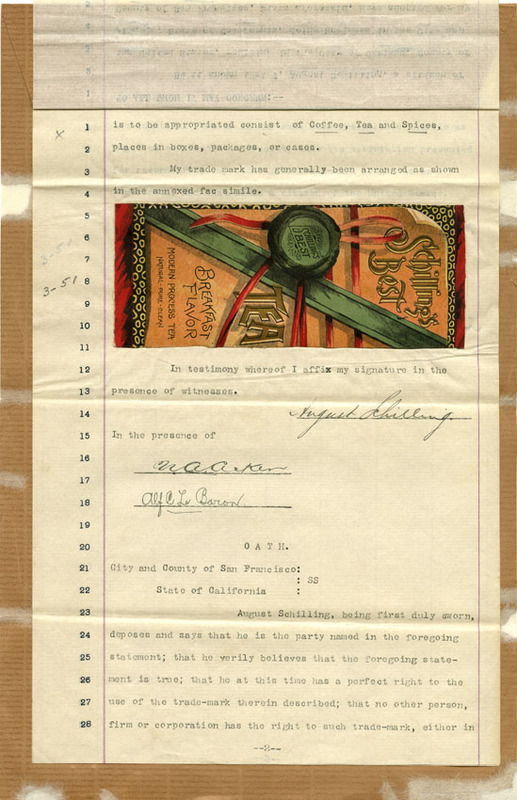 1 is to be appropriated consist of Coffee, Tea and Spices,
2 places in boxes, packages, or cases.
3 My trade mark has generally been arranged as shown
4 in the annexed fac simile.
5
6
7
8
9
10
11
3-51
3-51
Schilling's
Best
SCHILLING'S
BEST
TEA
BREAKFAST
FLAVOR
MODERN PROCESS TEA
NATURAL-PURE-CLEAN
12 In testimony whereof I affix my signature in the
13 presence of witnesses.
14 August Schilling
15 In the presence of
16
17
18 Alf C Le Baron
19
20 OATH.
21 City and County of San Francisco:
: SS
22 State of California :
23 August Schilling, being first duly sworn,
24 deposes and says that he is the party named in the foregoing
25 statement; that he verily believes that the foregoing state-
26 ment is true; that he at this time has a perfect right to the
27 use of the trade-mark therein described; that no other person,
28 firm or corporation has the right to such trade-mark, either in
--2--